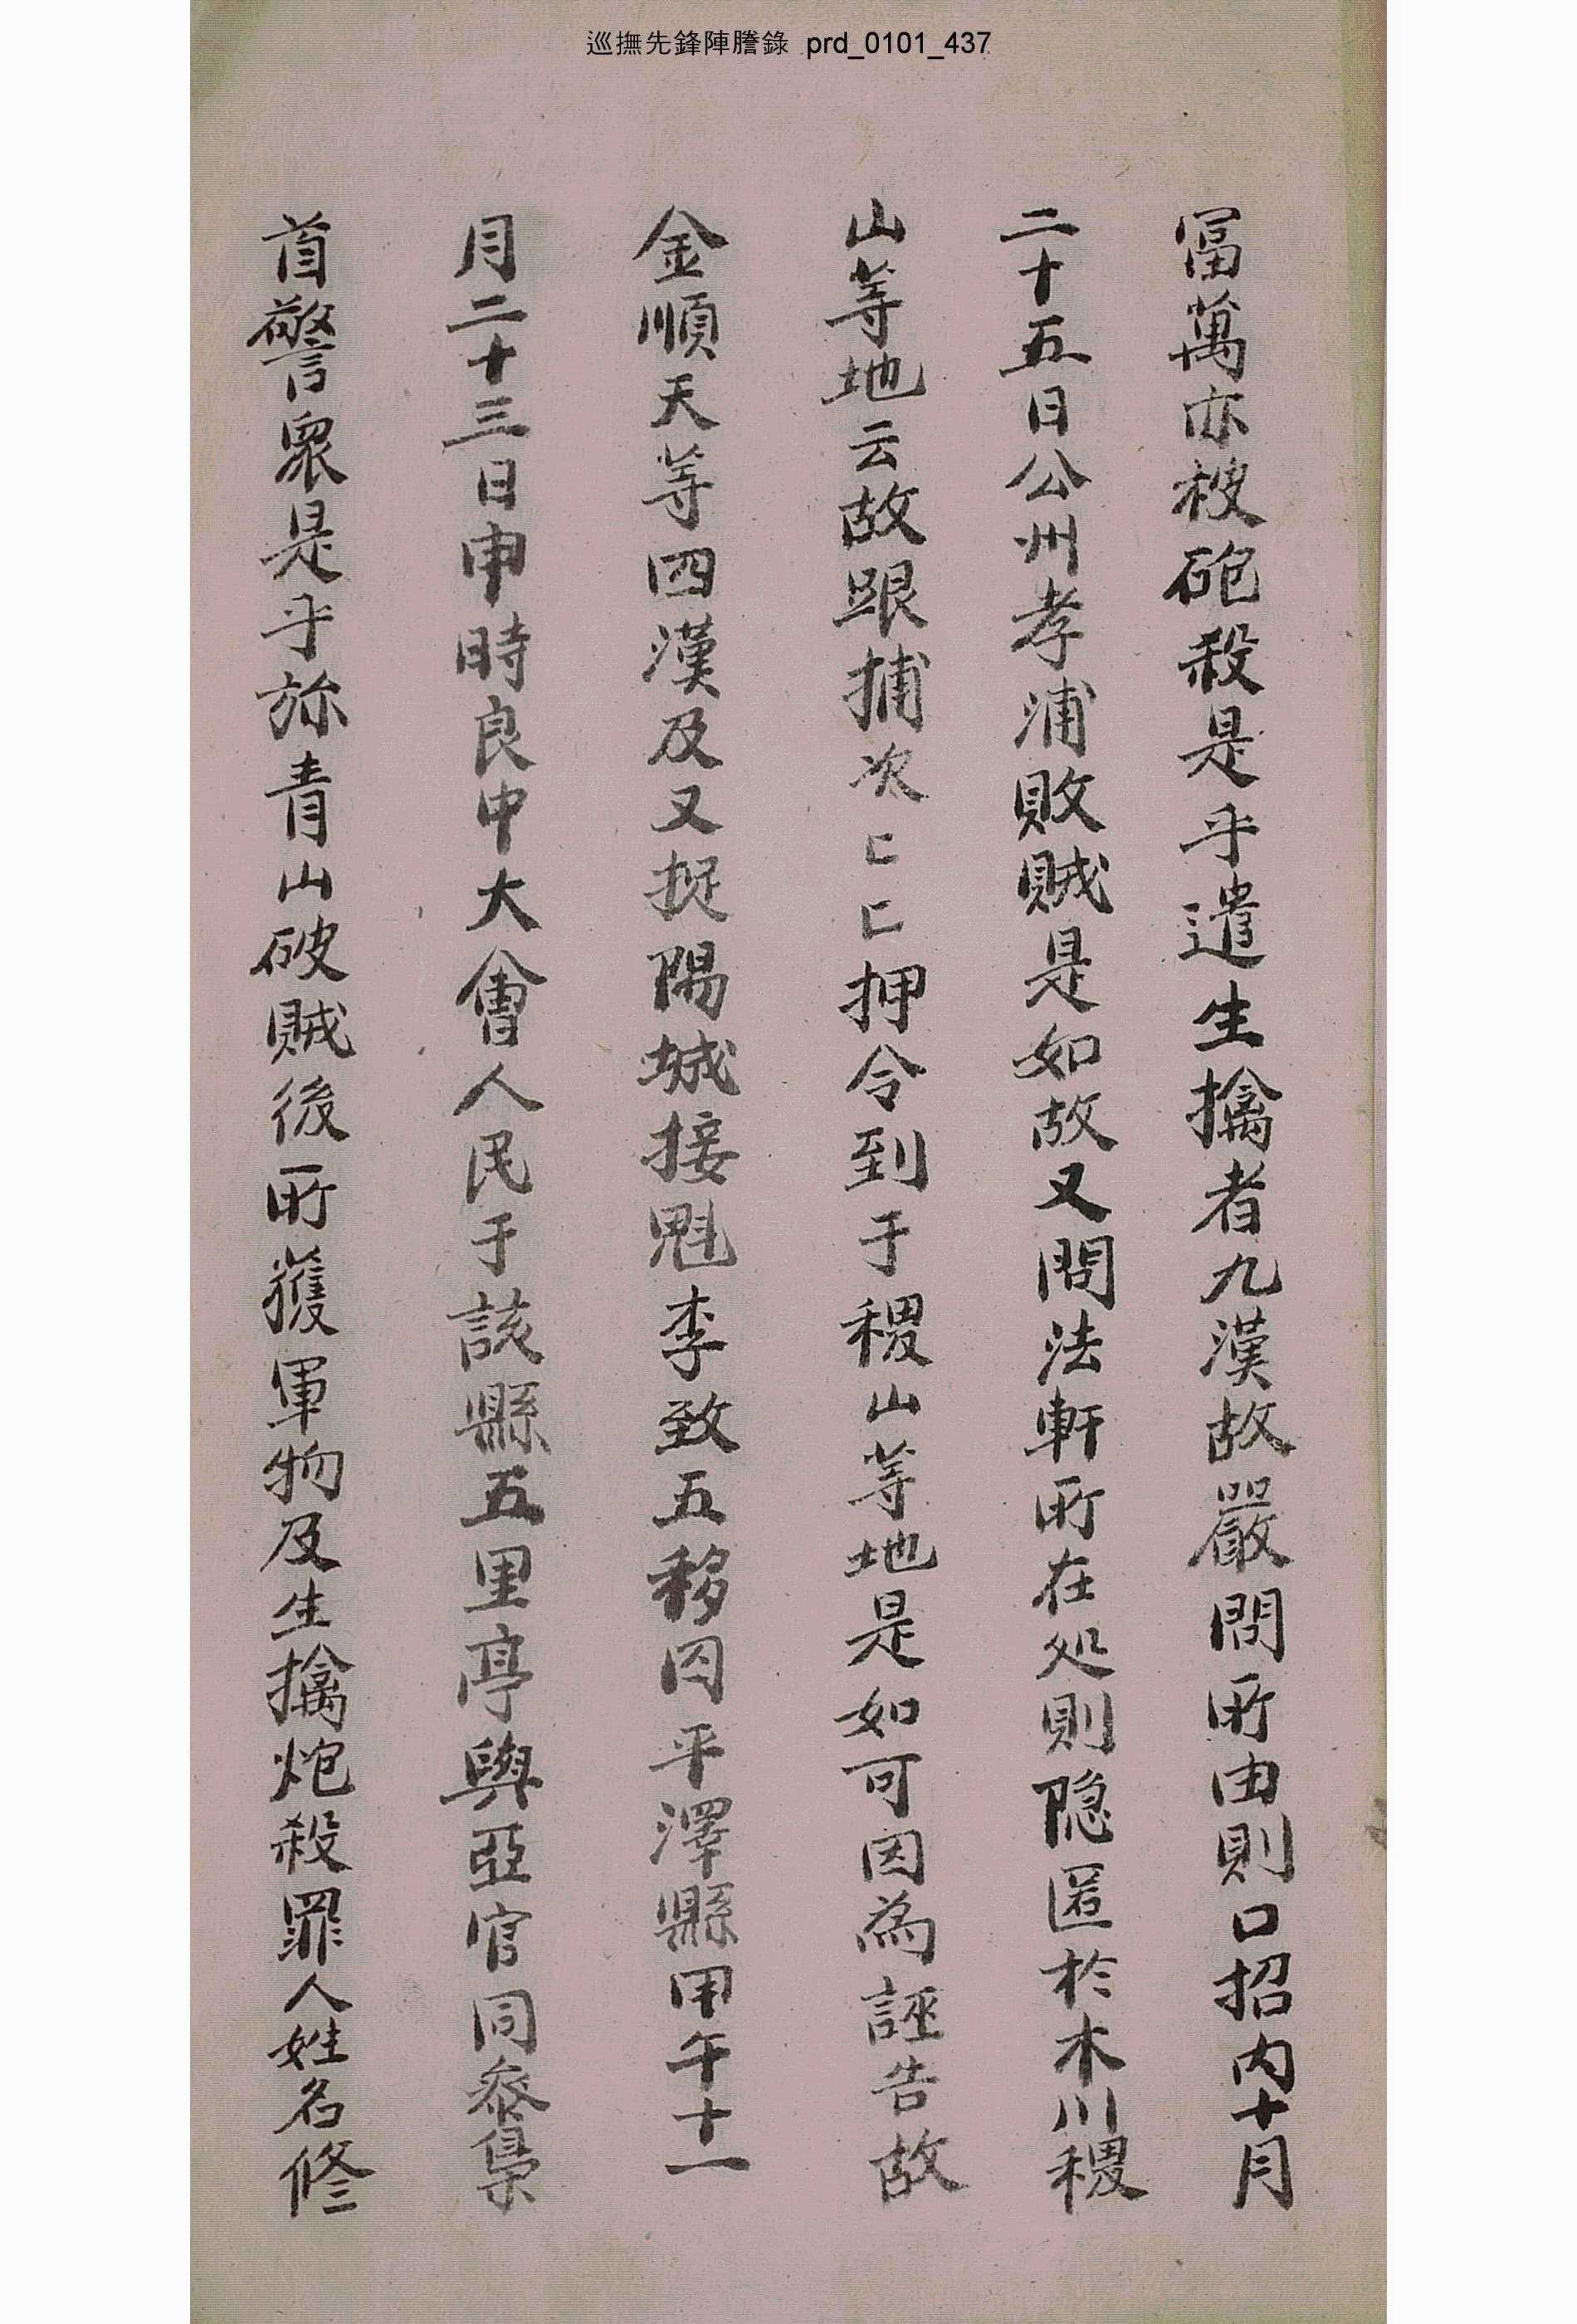 巡撫先鋒陣謄錄 prd_0101_437
冨萬亦被砲殺是乎遣生擒者九漢故嚴問所由則口招內十月
二十五日公州孝浦敗賊是如故又問法軒所在処則隐匿於木川稷
山等地云故跟捕次匕匕押令到于稷山等地是如可因為誣告故
金順天等四漢及又捉陽城接魁李致五移囚平澤縣甲午十一
月二十三日申時良中大會人民于該縣五里亭與亞官同叅梟
首警衆是乎旀青山破賊後所獲軍物及生擒炮殺罪人姓名修